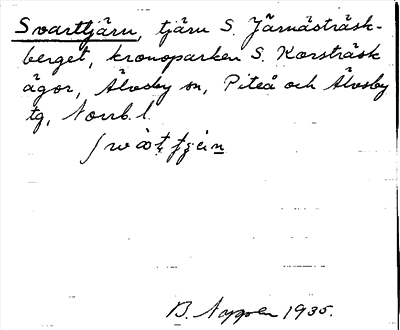 Svarttjärn, tjärn S. Järnästräsk-
berget, kronoparken S. Korsträsk
ägor, Älvsby sn, Piteå och Älvsby
tg, Norrb. l.
B. 1935.